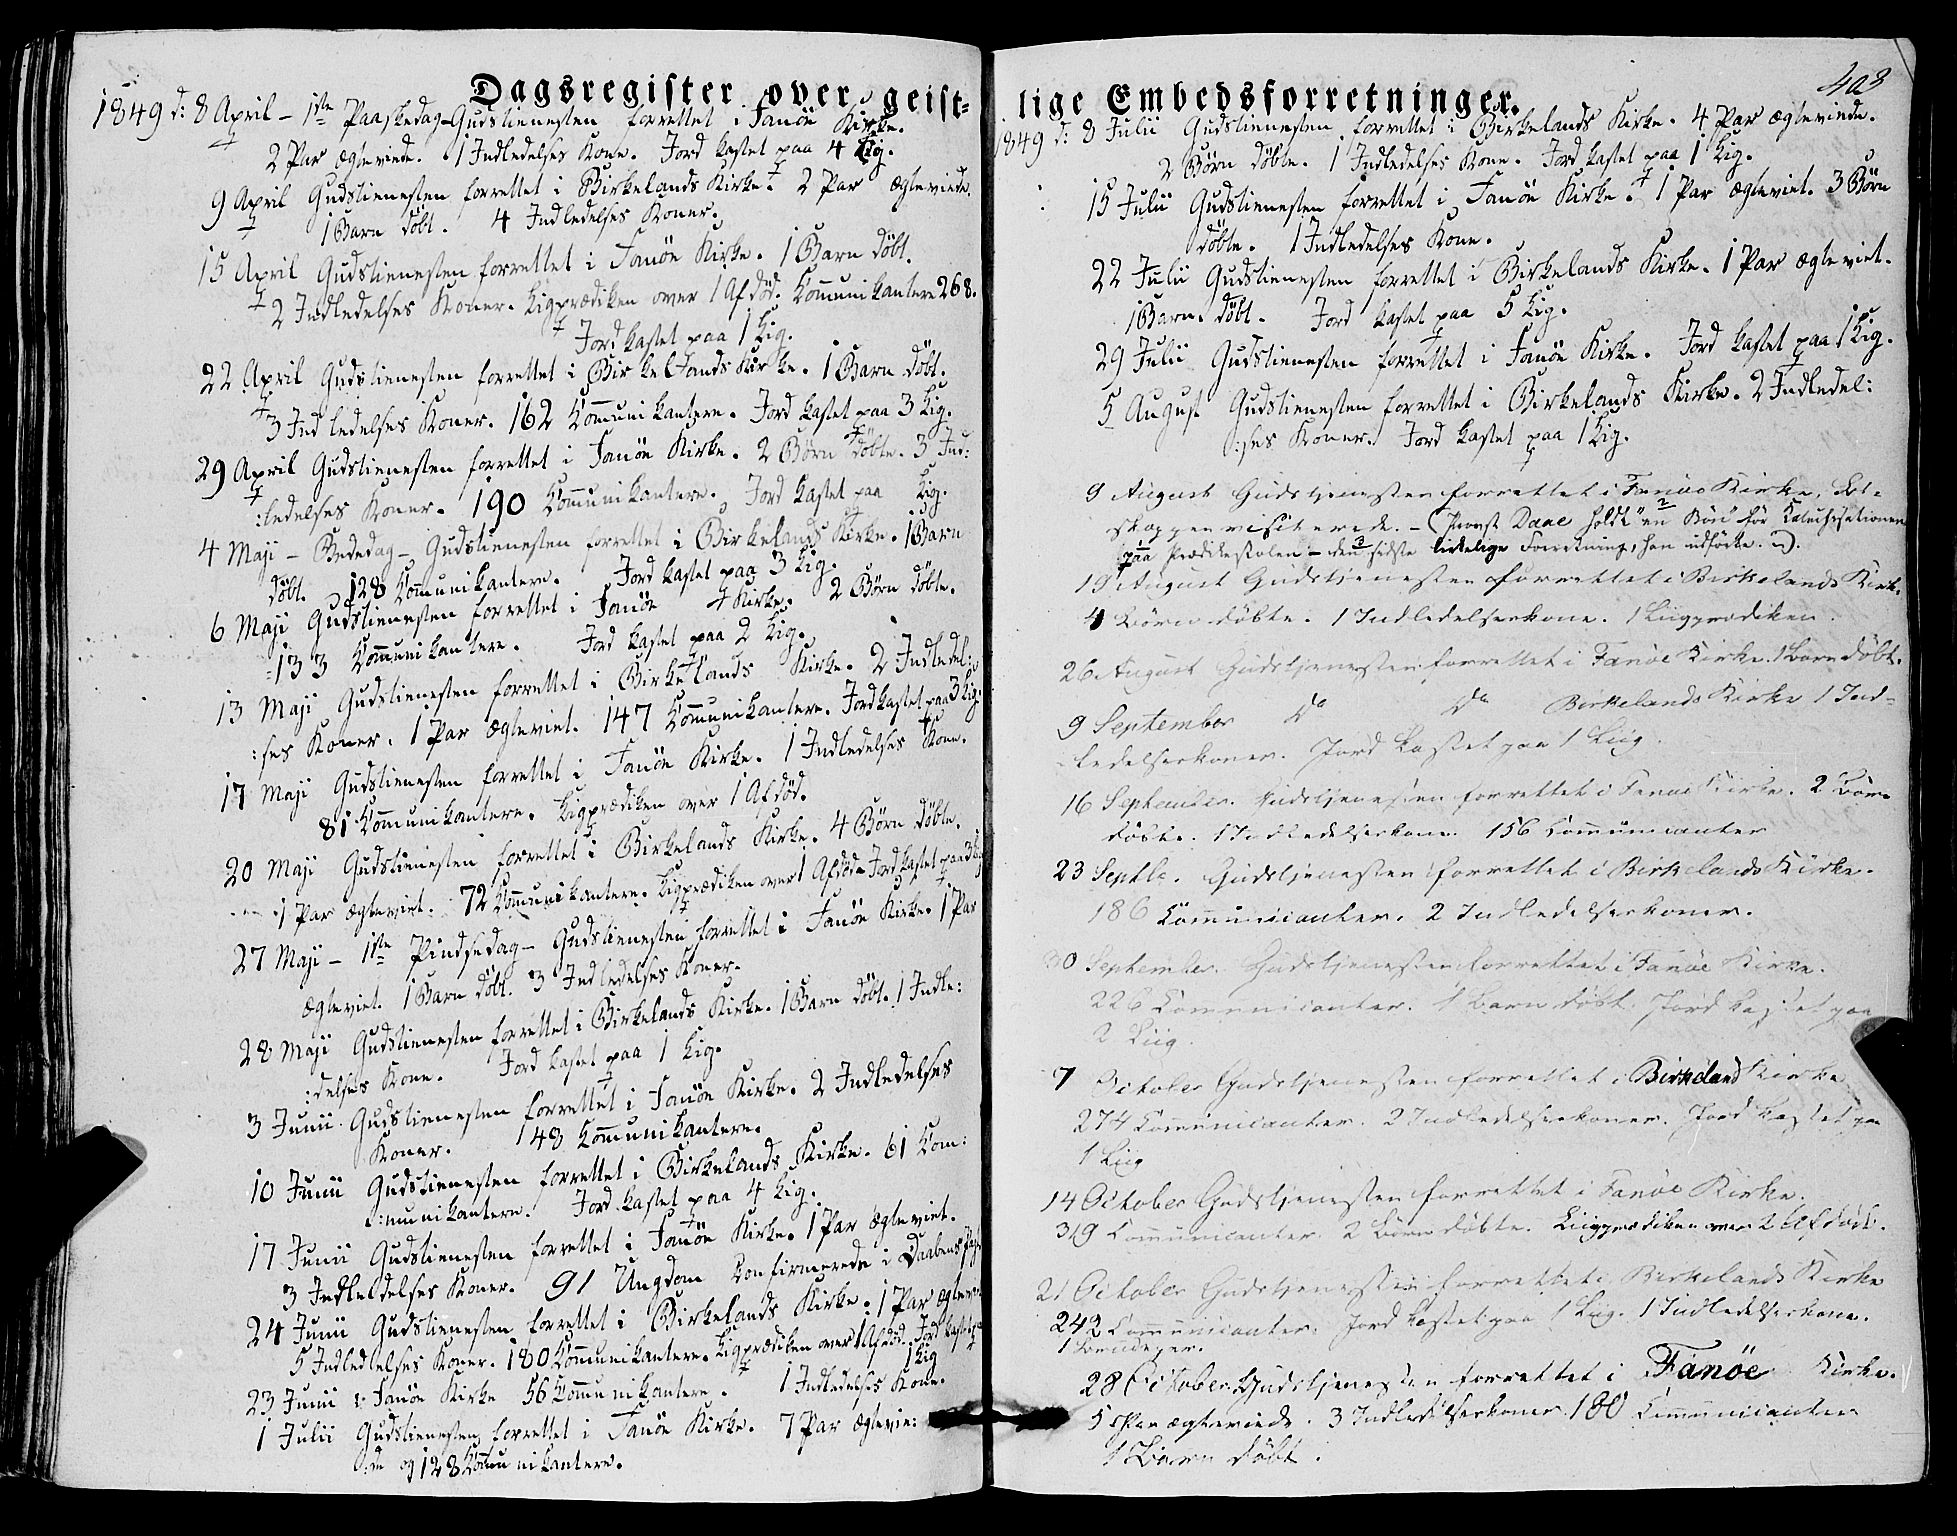 Dagsregister over geist-
1849 d: 8 April – 1ste Paaskedag – Gudstienesten forrettet i Fanöe Kirke.
2 Par ægteviede. 1 Indledelses Kone. Jord kastet paa 4 Lig.
9 April Gudstienesten forrettet i Birkelands Kirke. 2 Par ægteviede.
1 Barn döbt. 4 Indledelses Koner.
15 April Gudstienesten forrettet i Fanöe Kirke. 1 Barn döbt.
2 Indledelses Koner. Ligprædiken over 1 Afdöd. Communikantere 268.
Jord kastet paa 1 Lig.
22 April Gudstienesten forrettet i Birkelands Kirke. 1 Barn döbt.
3 Indledelses Koner. 162 Communikantere. Jord kastet paa 3 Lig.
29 April Gudstienesten forrettet i Fanöe Kirke. 2 Börn döbte. 3 Ind:
:ledelses Koner. 190 Communikantere. Jord kastet paa Lig.
4 Maji – Bededag – Gudstienesten forrettet i Birkelands Kirke. 1 Barn
döbt. 128 Communikantere. Jord kastet paa 3 Lig.
6 Maji Gudstienesten forrettet i Fanöe Kirke. 2 Börn döbte.
133 Communikantere. Jord kastet paa 2 Lig.
13 Maji Gudstienesten forrettet i Birkelands Kirke. 2 Indledel:
:ses Koner. 1 Par ægteviet. 147 Communikantere. Jord kastet paa 3 Lig.
17 Maji Gudstienesten forrettet i Fanöe Kirke. 1 Indledelses Kone.
81 Communikantere. Ligprædiken over 1 Afdöd.
20 Maji Gudstienesten forrettet i Birkelands Kirke. 4 Börn döbte.
1 Par ægteviet. 72 Communikantere. Ligprædiken over 1 Afdöd. Jord kastet paa 3 Lig
27 Maji – 1ste Pindsedag – Gudstienesten forrettet i Fanöe Kirke. 1 Par
ægteviet. 1 Barn döbt. 3 Indledelses Koner.
28 Maji Gudstienesten forrettet i Birkelands Kirke. 1 Barn döbt. 1 Indle:
:delses Kone. Jord kastet paa 1 Lig.
3 Junii Gudstienesten forrettet i Fanöe Kirke. 2 Indledelses
Koner. 148 Communikantere.
10 Junii Gudstienesten forrettet i Birkelands Kirke. 61 Com:
:munikantere. Jord kastet paa 4 Lig.
17 Junii Gudstienesten forrettet i Fanöe Kirke. 1 Par ægteviet.
3 Indledelses Koner. 91 Ungdom Confirmerede i Daabens
24 Junii Gudstienesten forrettet i Birkelands Kirke. 1 Par ægteviet
5 Indledelses Koner. 180 Communikantere. Ligprædiken over 1 Afdöd. Jord kastet paa
1 Lig
23 Junii i Fanöe Kirke 56 Communikantere. 1 Indledelses Kone.
1 Julii Gudstienesten forrettet i Fanöe Kirke. 7 Par ægtevie:
:de og 128 Communikantere.
lige Embedsforretninger.
403
1849 d: 8 Julii Gudstienesten forrettet i Birkelands Kirke. 4 Par ægteviede.
2 Börn döbte. 1 Indledelses Kone. Jord kastet paa 1 Lig.
15 Julii Gudstienesten forrettet i Fanöe Kirke. 1 Par ægteviet. 3 Börn
döbte. 1 Indledelses Kone.
22 Julii Gudstienesten forrettet i Birkelands Kirke. 1 Par ægteviet.
1 Barn döbt. Jord kastet paa 5 Lig.
29 Julii Gudstienesten forrettet i Fanöe Kirke. Jord kastet paa 1 Lig.
5 August Gudstienesten forrettet i Birkelands Kirke. 2 Indledel:
:ses Koner. Jord kastet paa 1 Lig.
9 August Gudstjenesten forrettet i Fanöe Kirke,
visiterede. – (Provst Daae holdt en Bön för Katechisationen
paa Prædikestolen – den sidste kirkelige Forretning, han udförte.).
19 August Gudstjenesten forrettet i Birkelands Kirke.
4 Börn döbte. 1 Indledelseskone. 1 Liigprædiken.
26 August Gudstjenesten forrettet i Fanöe Kirke. 1 Barn döbt.
9 September do do Birkelands Kirke 1 Ind-
ledelseskoner. Jord kastet paa 1 Liig.
16 September. Gudstjenesten forrettet i Fanöe Kirke. 2 Börn
döbte. 1 Indledelseskone. 156 Communicanter
23 Septbr. Gudstjenesten forrettet i Birkelands Kirke.
186 Communicanter. 2 Indledelseskoner.
30 September. Gudstjenesten forrettet i Fanöe Kirke.
226 Communicanter. 1 Barn döbt. Jord kastet paa
2 Liig.
7 October Gudstjenesten forrettet i Birkeland Kirke
274 Communicanter. 2 Indledelseskoner. Jord kastet paa
1 Liig
14 October Gudstjenesten forrettet i Fanöe Kirke.
319 Communicanter. 2 Börn döbte. Liigprædiken over 2 Afdöde.
21 October Gudstjenesten forrettet i Birkelands Kirke
242 Communicanter. Jord kastet paa 1 Liig. 1 Indledelseskone.
28 October. Gudstjenesten forrettet i Fanöe Kirke.
5 Par ægteviede. 3 Indledelseskoner. 180 Communicanter
1 Barn döbt.